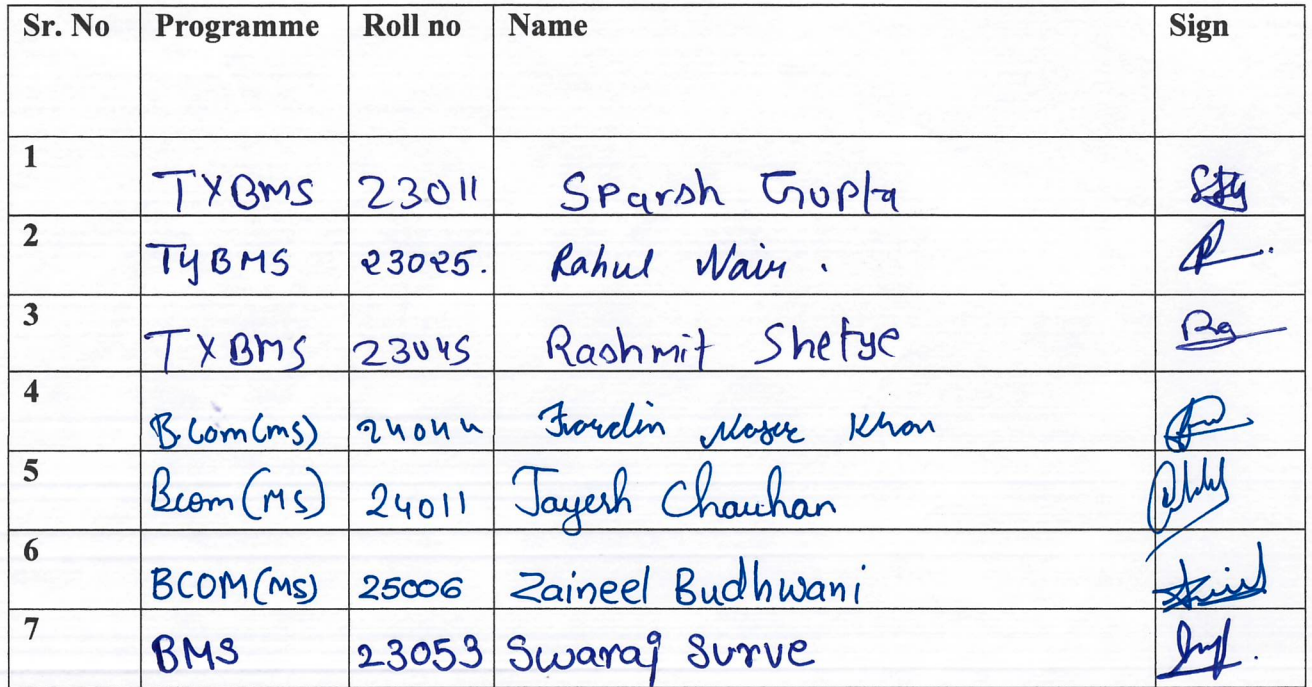 Sr. No Programme Roll no Name Sign
1 TYBMS 23011 Sparsh Gupta
2 TYBMS 23025. Rahul Nair.
3 TYBMS 23045 Rashmit Shetye
4 B.Com(ms) 24044 Fardin Khan
5 Bcom(MS) 24011 Jayesh Chauhan
6 BCOM(MS) 25006 Zaineel Budhwani
7 BMS 23053 Swaraj Surve